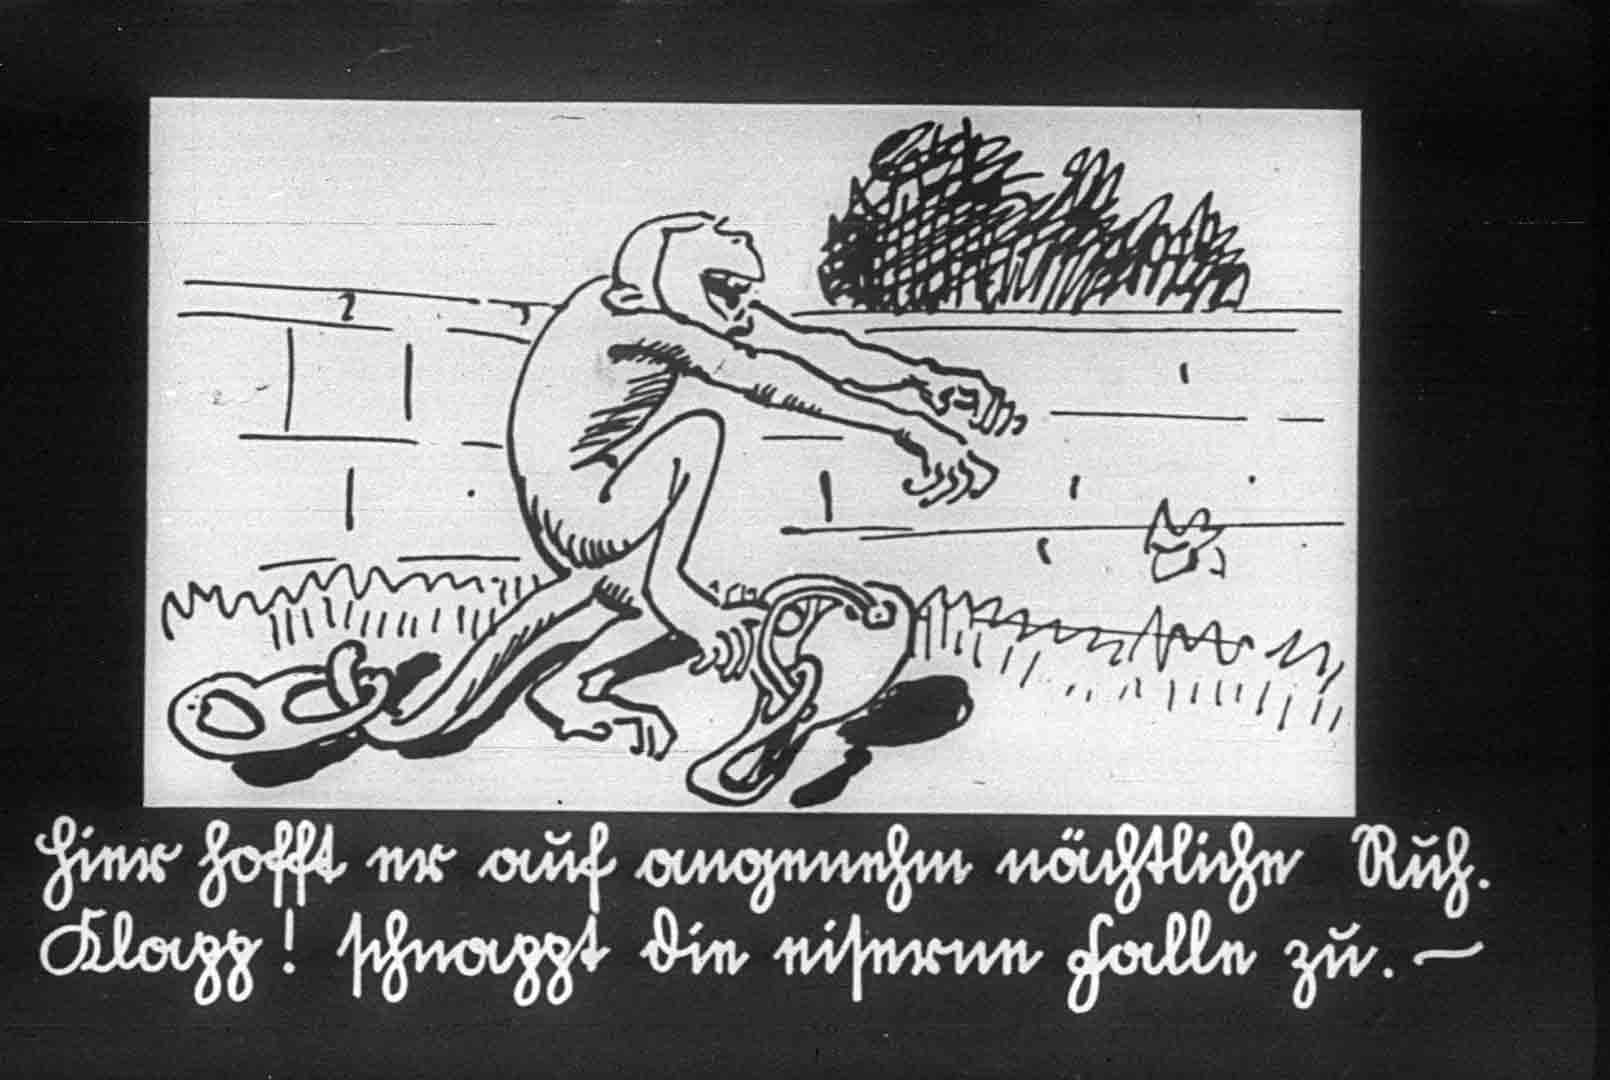 Hier hofft er auf angenehm nächtliche Ruh.
Klapp! schnappt die eiserne Falle zu. –